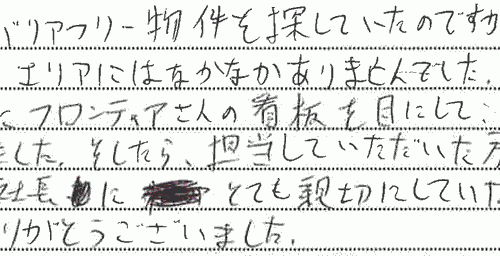 バリアフリー物件を探していたのですが
エリアにはなかなかありませんでした。
にフロンティアさんの看板を目にして
ました。そしたら、担当していただいた方
社長に とても親切にしていた
りがとうございました。